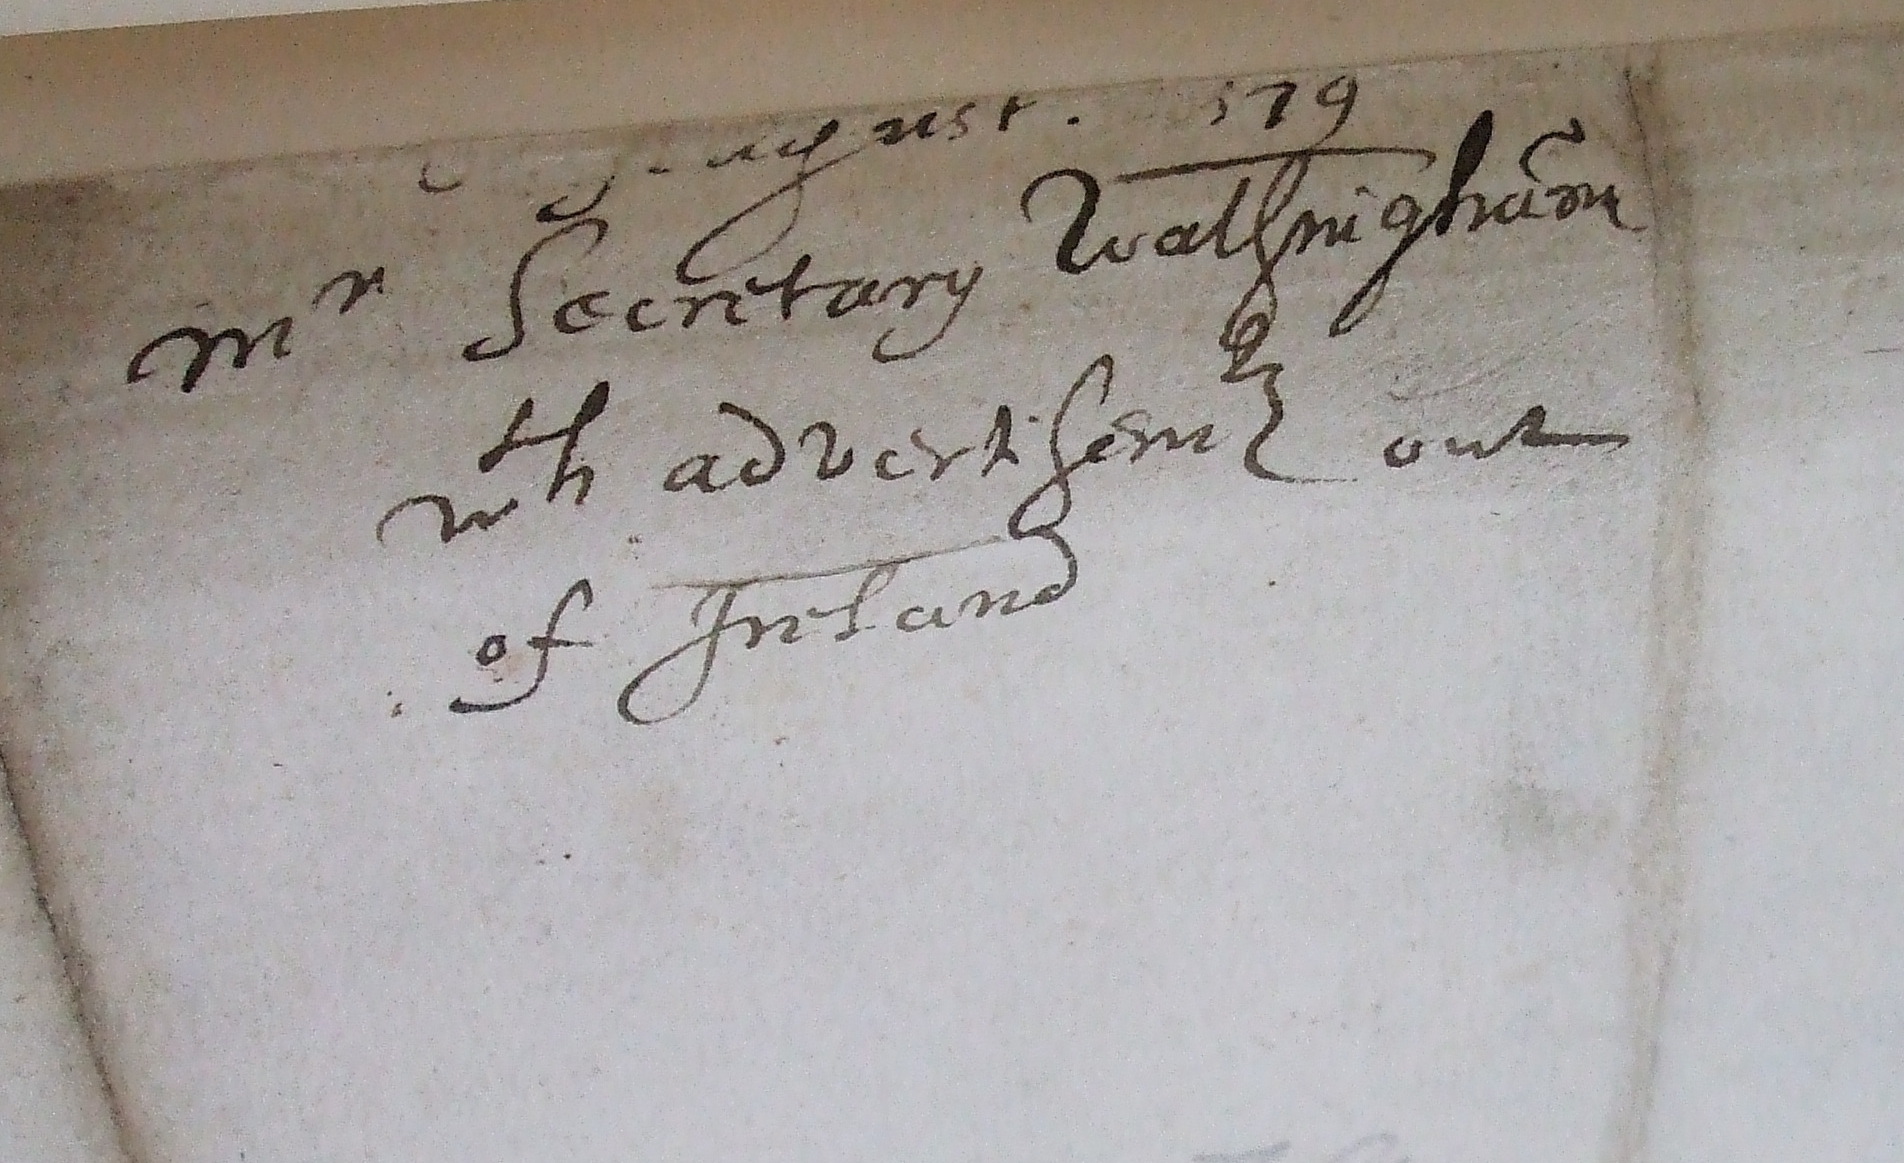 August. 1579
Mr Secretary Walsingham
wth advertisemts out
of Ireland